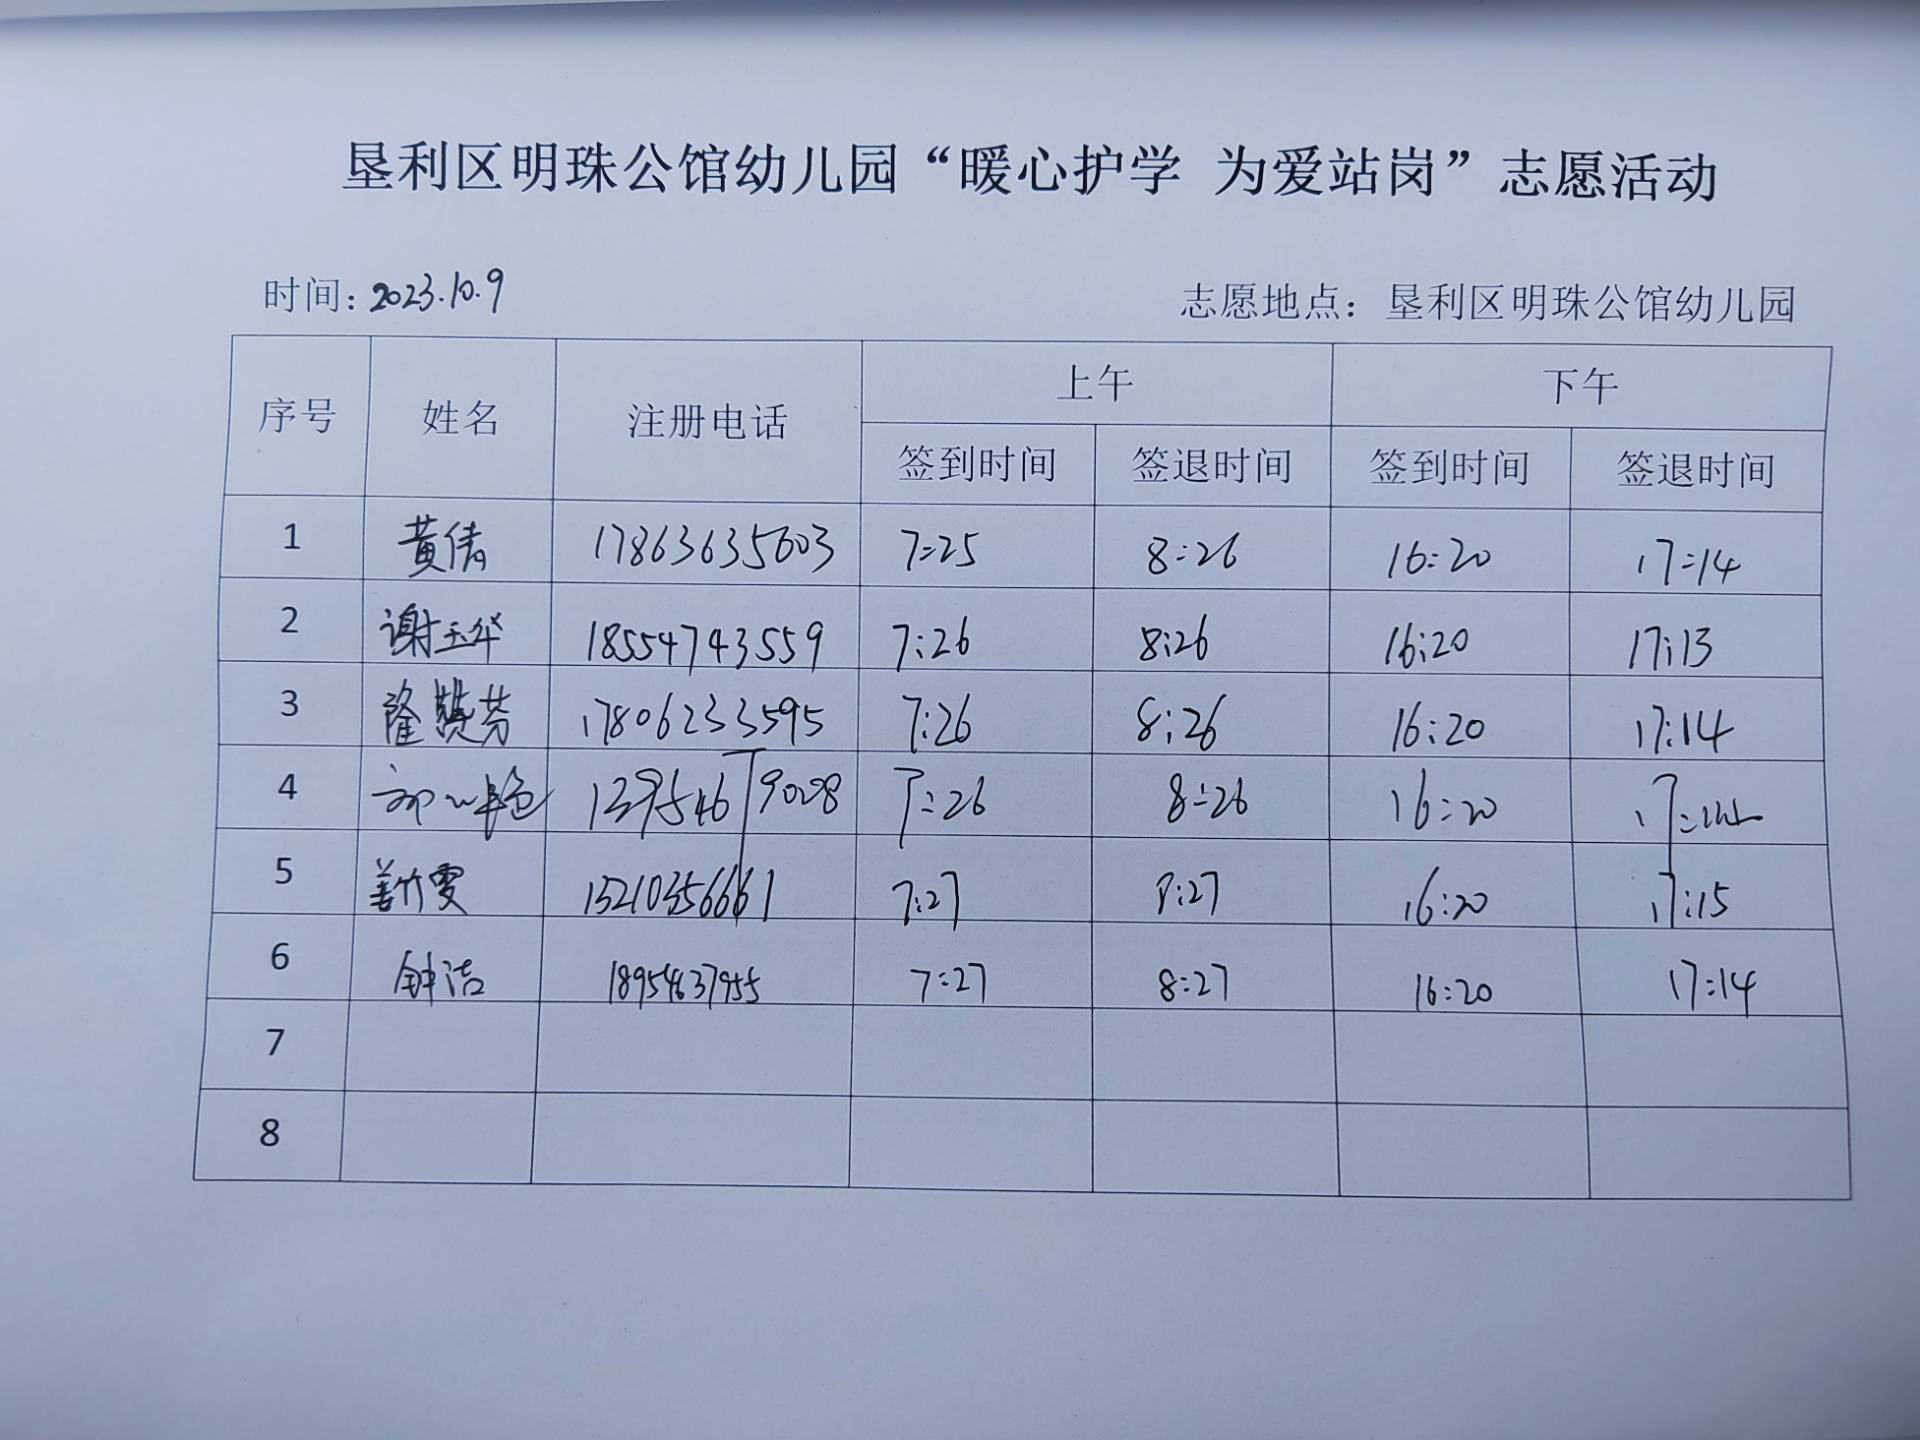 垦利区明珠公馆幼儿园“暖心护学 为爱站岗”志愿活动
时间: 2023.10.9 志愿地点: 垦利区明珠公馆幼儿园
序号 姓名 注册电话 上午 下午
签到时间 签退时间 签到时间 签退时间
1 黄倩 17863635603 7:25 8:26 16:20 17:14
2 谢玉华 18554743559 7:26 8:26 16:20 17:13
3 隆赞芳 17806233595 7:26 8:26 16:20 17:14
4 7:26 8:26 16:20
5 15210356661 7:27 8:27 16:20 17:15
6 钟洁 18954637955 7:27 8:27 16:20 17:14
7
8